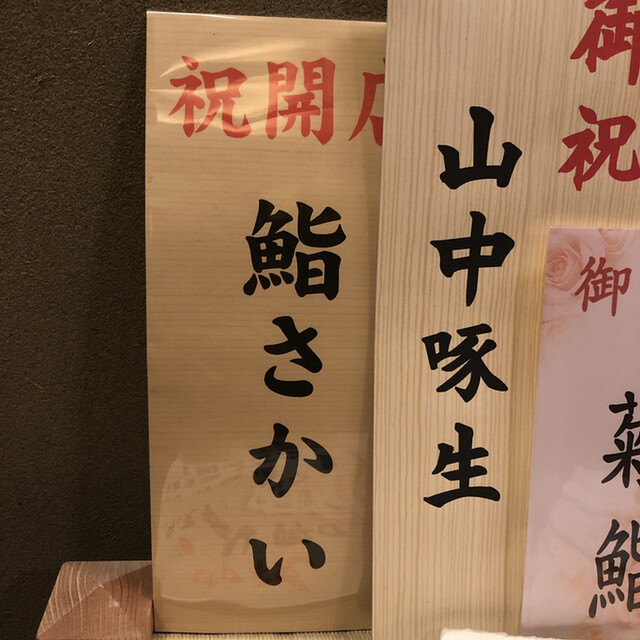 祝開店
鮨さかい
御祝
山中啄生
御
菊鮨